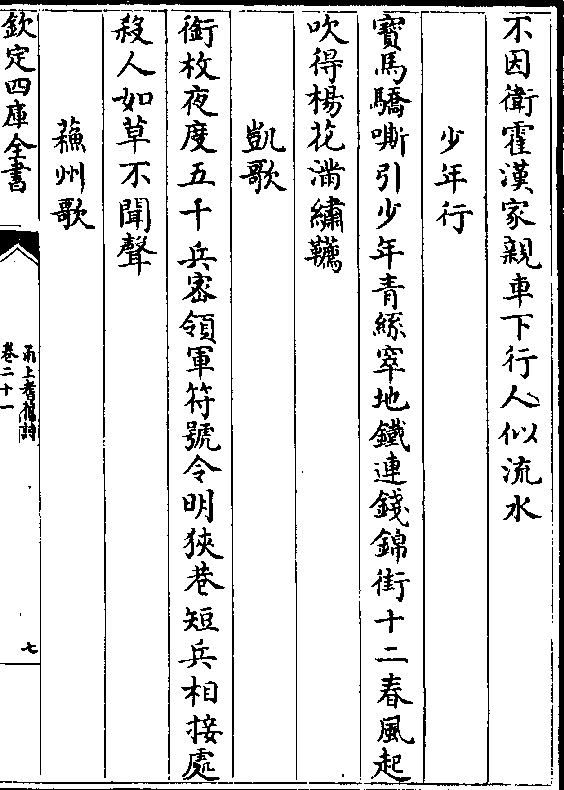 不因衛霍漢家親車下行人似流水
少年行
寶馬驕嘶引少年青絲窣地鐵連錢錦街十二春風起
吹得楊花滿繡韉
凱歌
銜枚夜度五千兵密領軍符號令明狹巷短兵相接處
殺人如草不聞聲
蘓州歌
欽定四庫全書
甬上耆舊詩
卷二十一
七